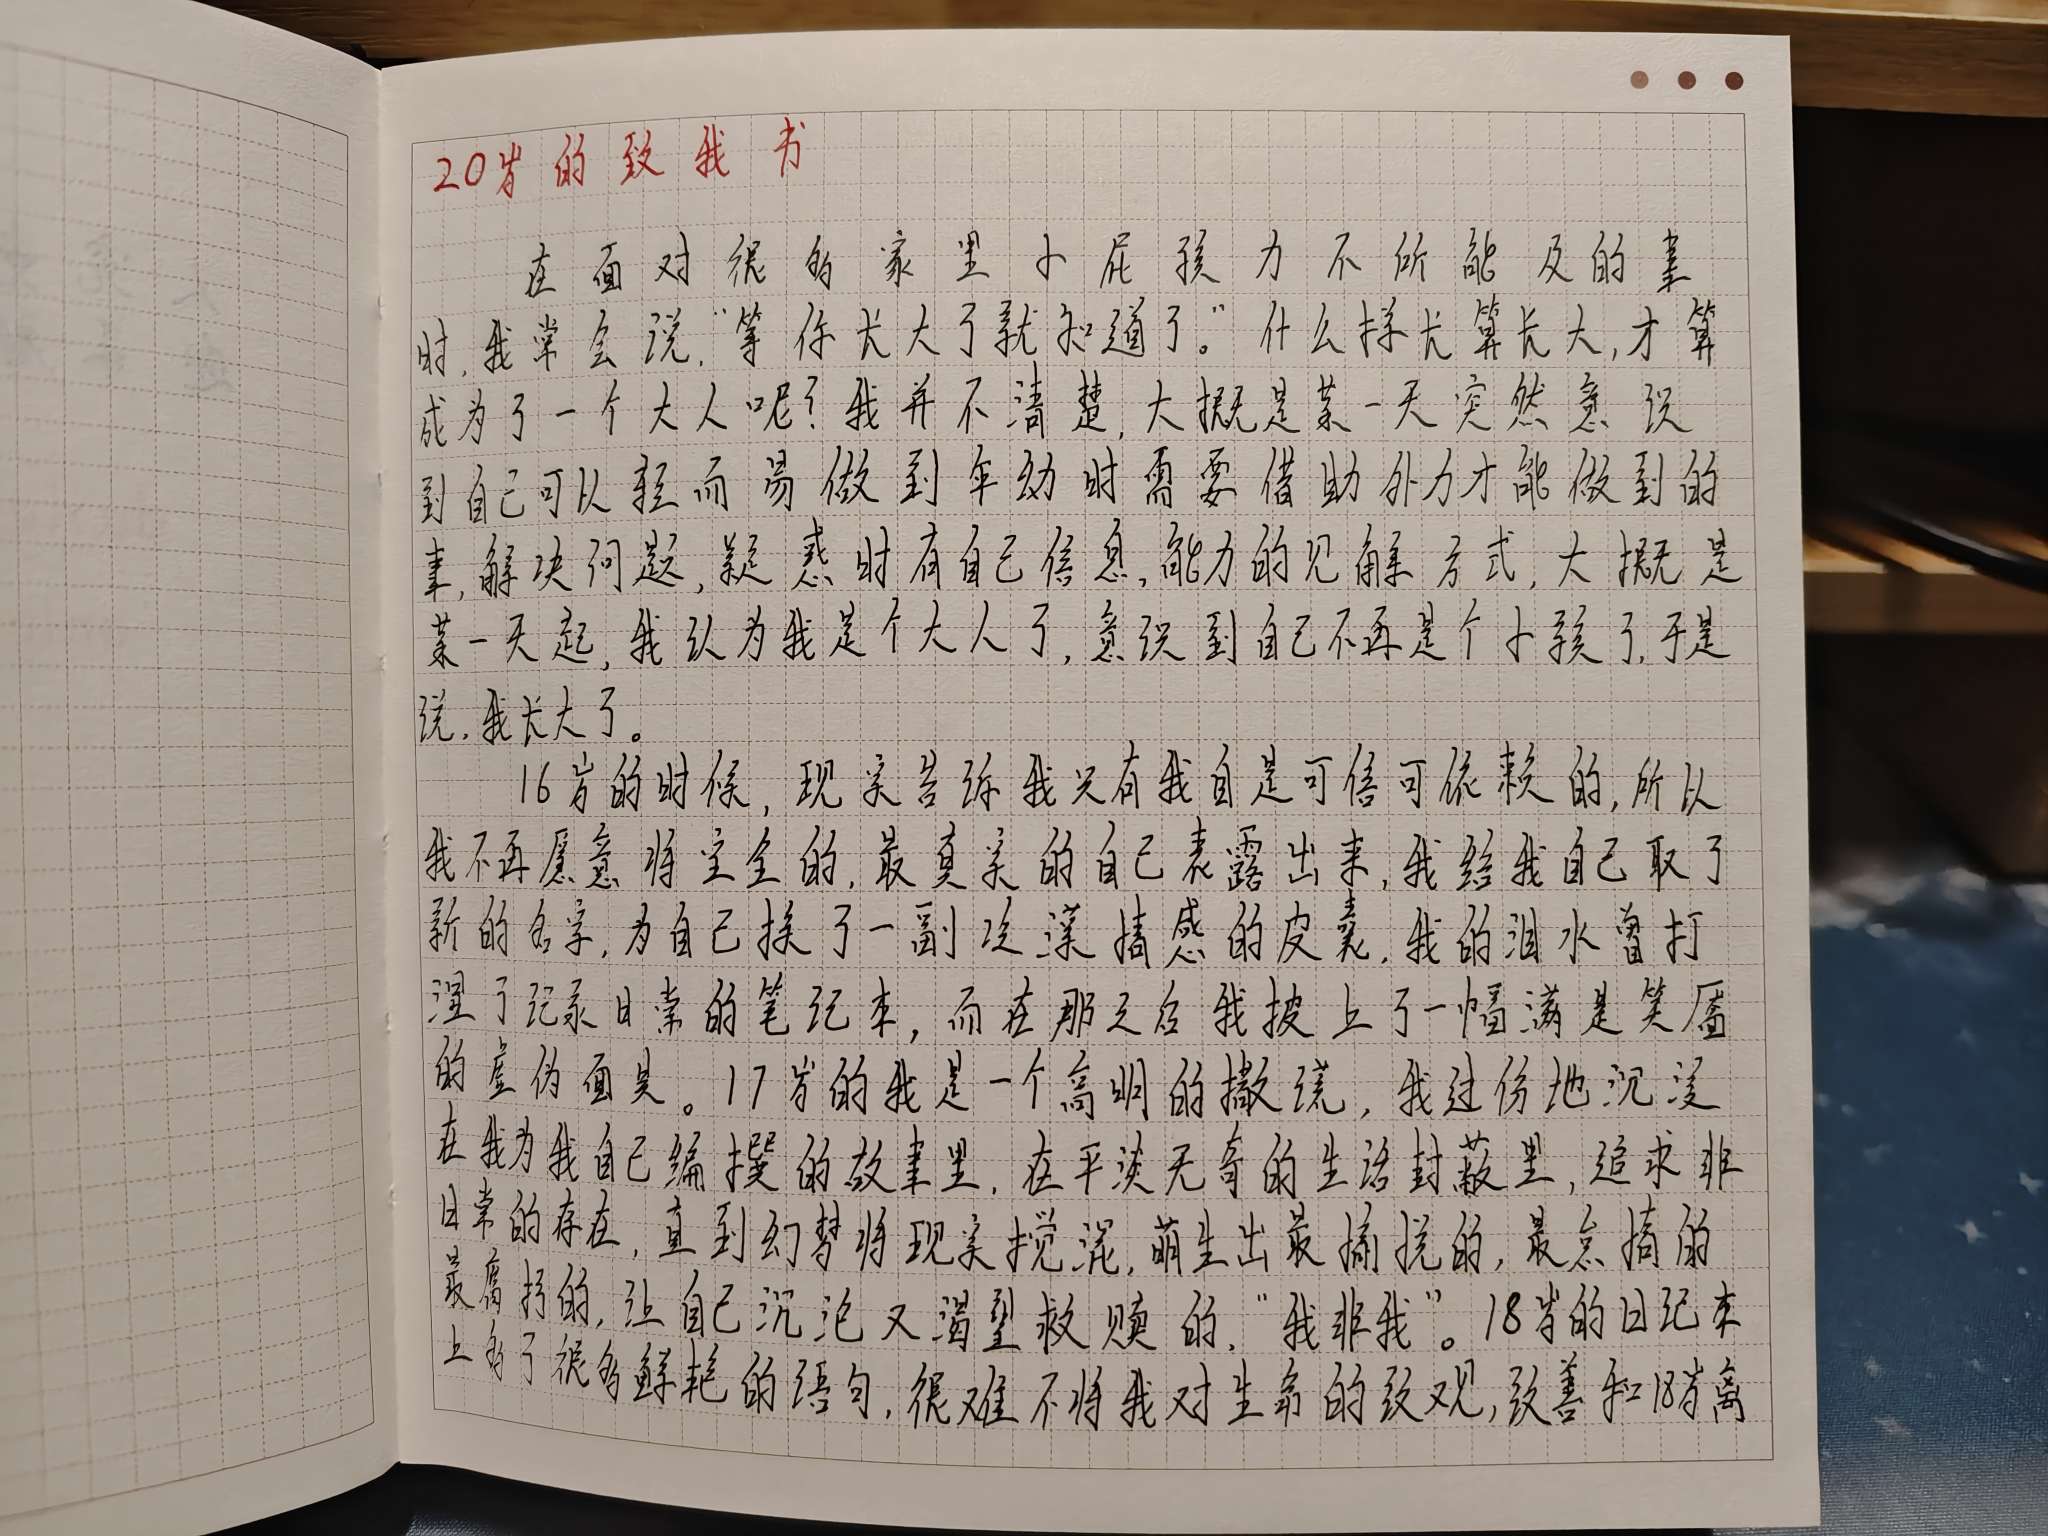 20岁的致我书
在面对很多家里小屁孩力不所能及的事
时,我常会说,"等你长大了就知道了。"什么样长算长大,才算
成为了一个大人呢?我并不清楚,大概是某一天突然意识
到自己可以轻而易做到年幼时需要借助外力才能做到的
事,解决问题,疑惑时有自己信息,能力的见解方式,大概是
某一天起,我认为我是个大人了,意识到自己不再是个小孩了,于是
说,我长大了。
16岁的时候,现实告诉我只有我自是可信可依赖的,所以
我不再愿意将完全的,最真实的自己表露出来,我给我自己取了
新的名字,为自己换了一副淡漠情感的皮囊,我的泪水曾打
湿了记录日常的笔记本,而在那之后我披上了一幅满是笑靥
的虚伪面具。17岁的我是一个高明的撒谎,我过份地沉浸
在我为我自己编撰的故事里,在平淡无奇的生活封蔽里,追求非
日常的存在,直到幻梦将现实搅混,萌生出最 的,最 的
最腐朽的,让自己沉沦又渴望救赎的,"我非我"。18岁的日记本
上多了很多鲜艳的语句,很难不将我对生命的致观,致善和18岁离